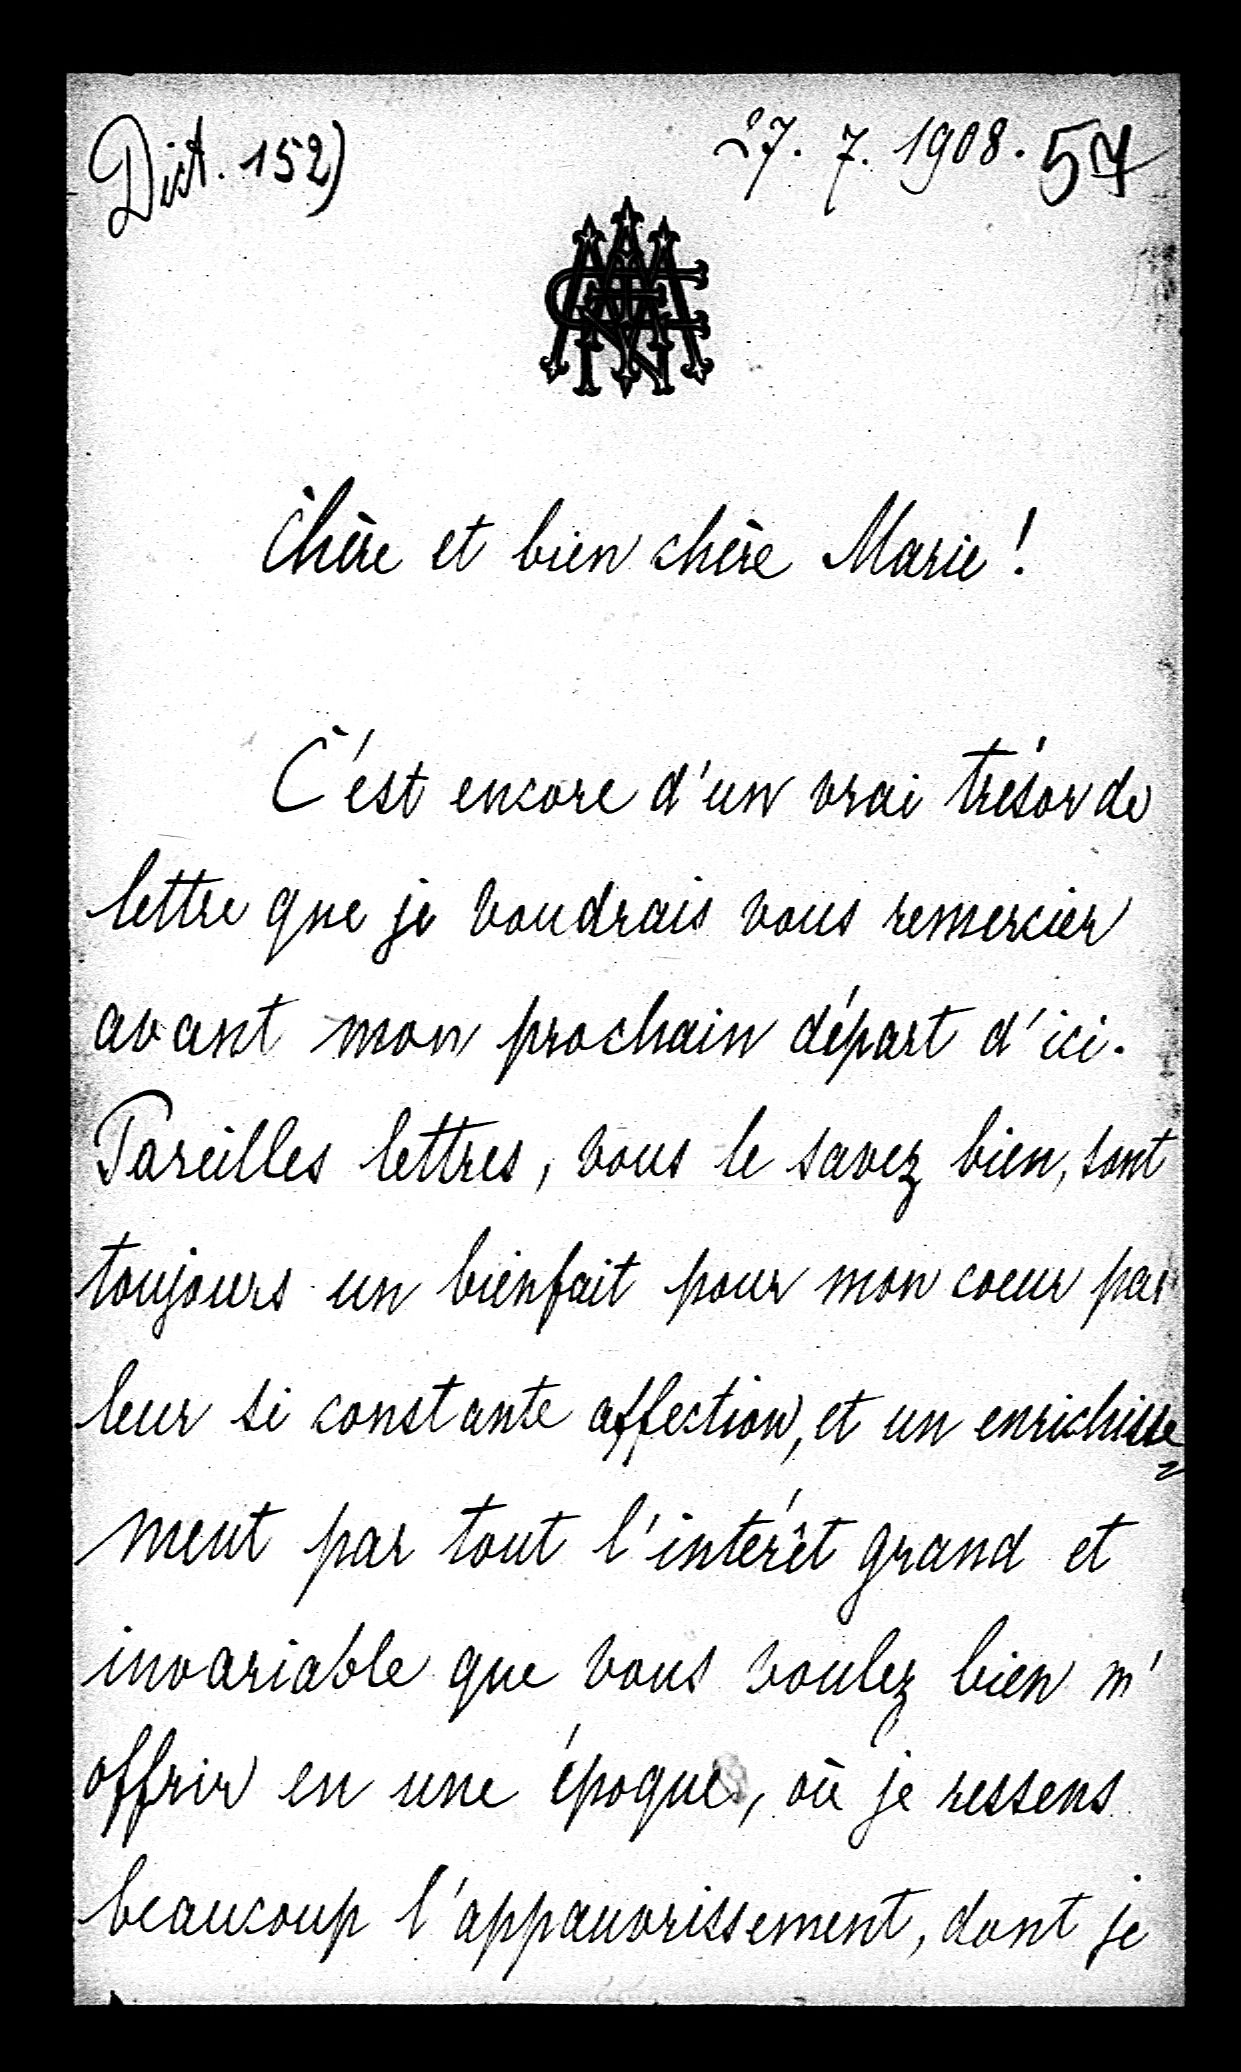 Dict. 152)
27. 7. 1908. 57
Chère et bien chère Marie !
C'est encore d'un vrai trésor de
lettre que je voudrais vous remercier
avant mon prochain départ d'ici.
Pareilles lettres, vous le savez bien, sont
toujours un bienfait pour mon coeur par
leur si constante affection, et un enrichisse
ment par tout l'intérêt grand et
invariable que vous voulez bien m'
offrir en une époque, où je ressens
beaucoup l'appauvrissement, dont je